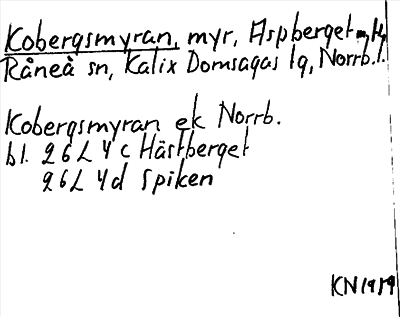 Kobergsmyran, myr, Aspberget
Råneå sn, Kalix Domsagas lg, Norrb.l.
Kobergsmyran ek Norrb.
bl. 26L 4c Hästberget
26L 4d Spiken